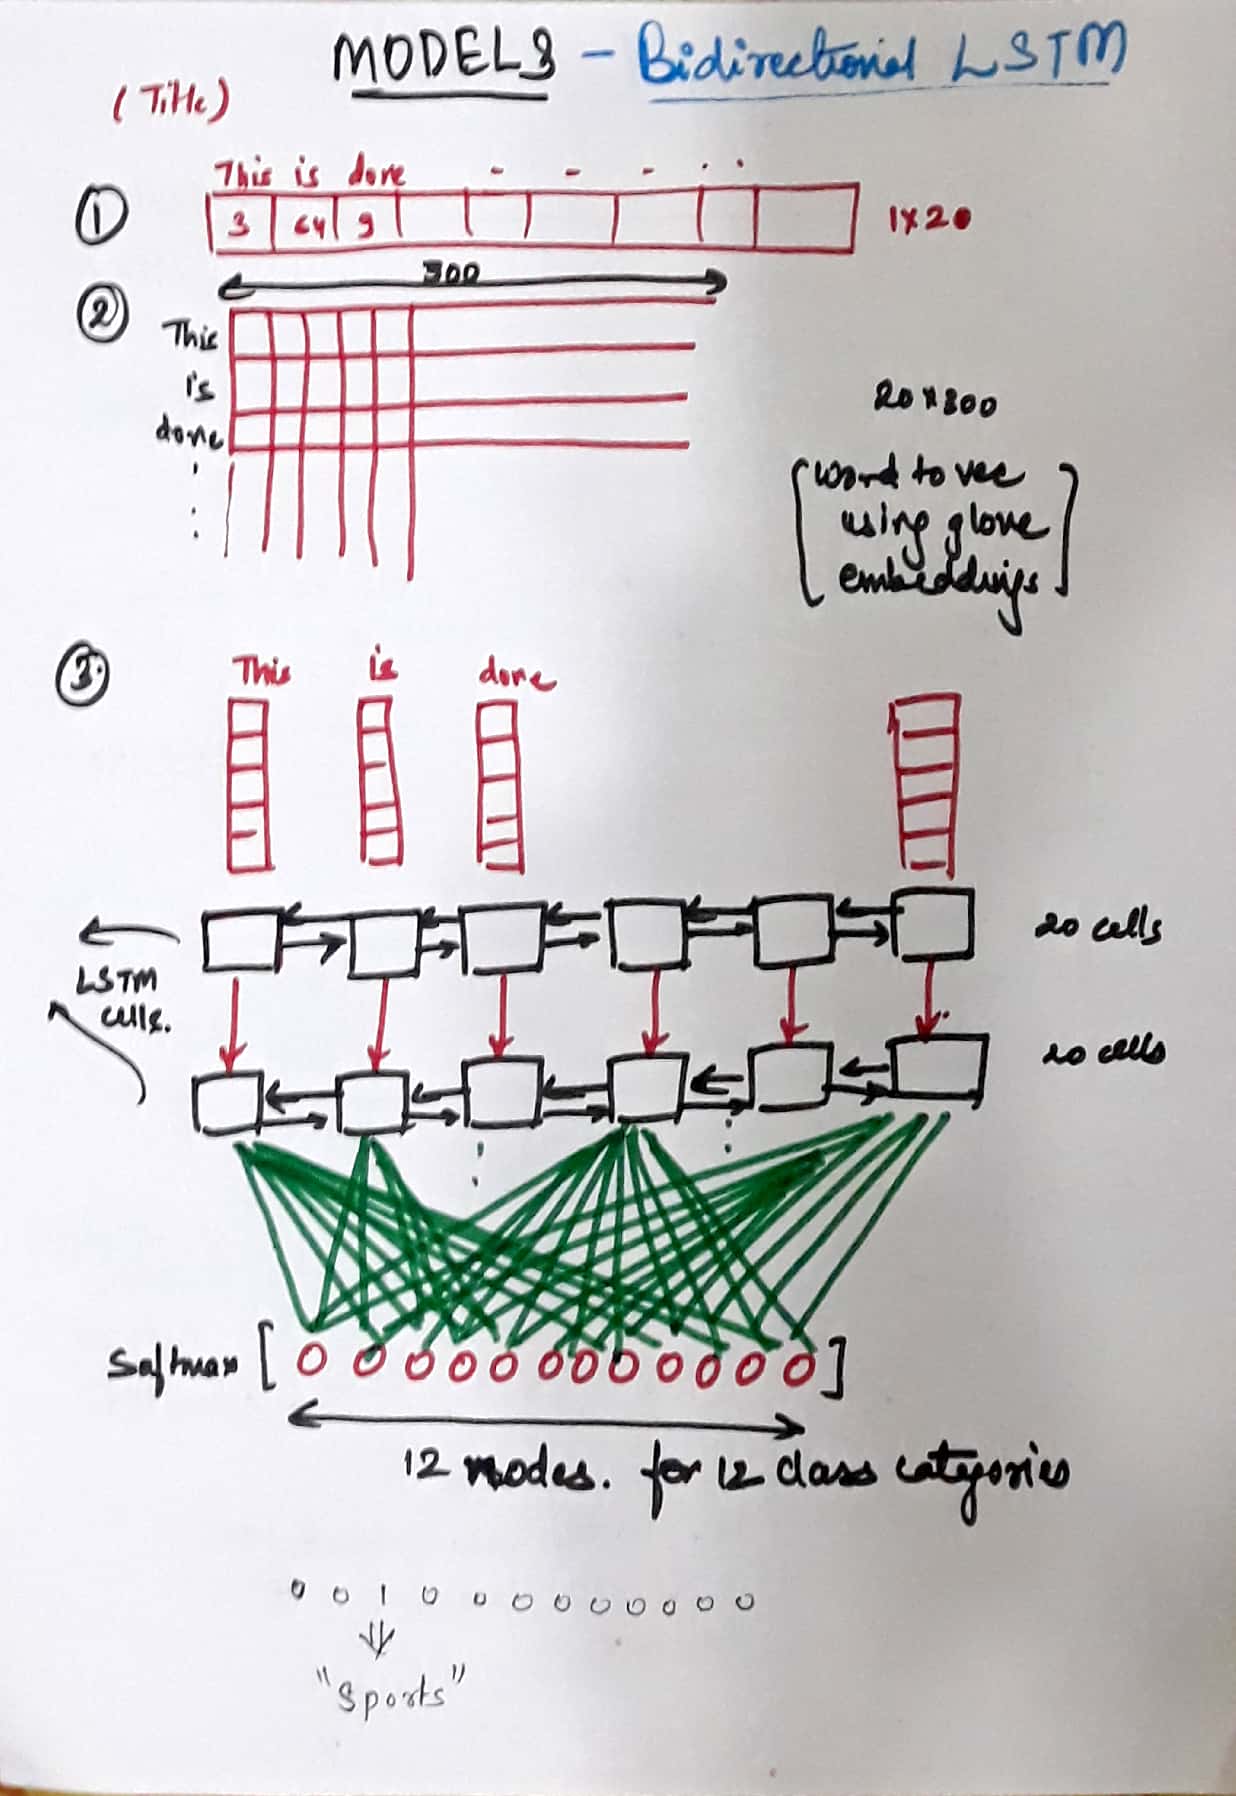 MODEL3 - Bidirectional LSTM
(Title)
This is done - - - . .
① 3 64 9 1x20
300
②
This
is
done
20x300
[word to vec
using glove
embeddings]
③
This is done
20 cells
LSTM
cells.
20 cells
Softmax [ O O O O O O O O O O O O ]
12 nodes. for 12 class categories
0 0 1 0 0 0 0 0 0 0 0 0
"Sports"